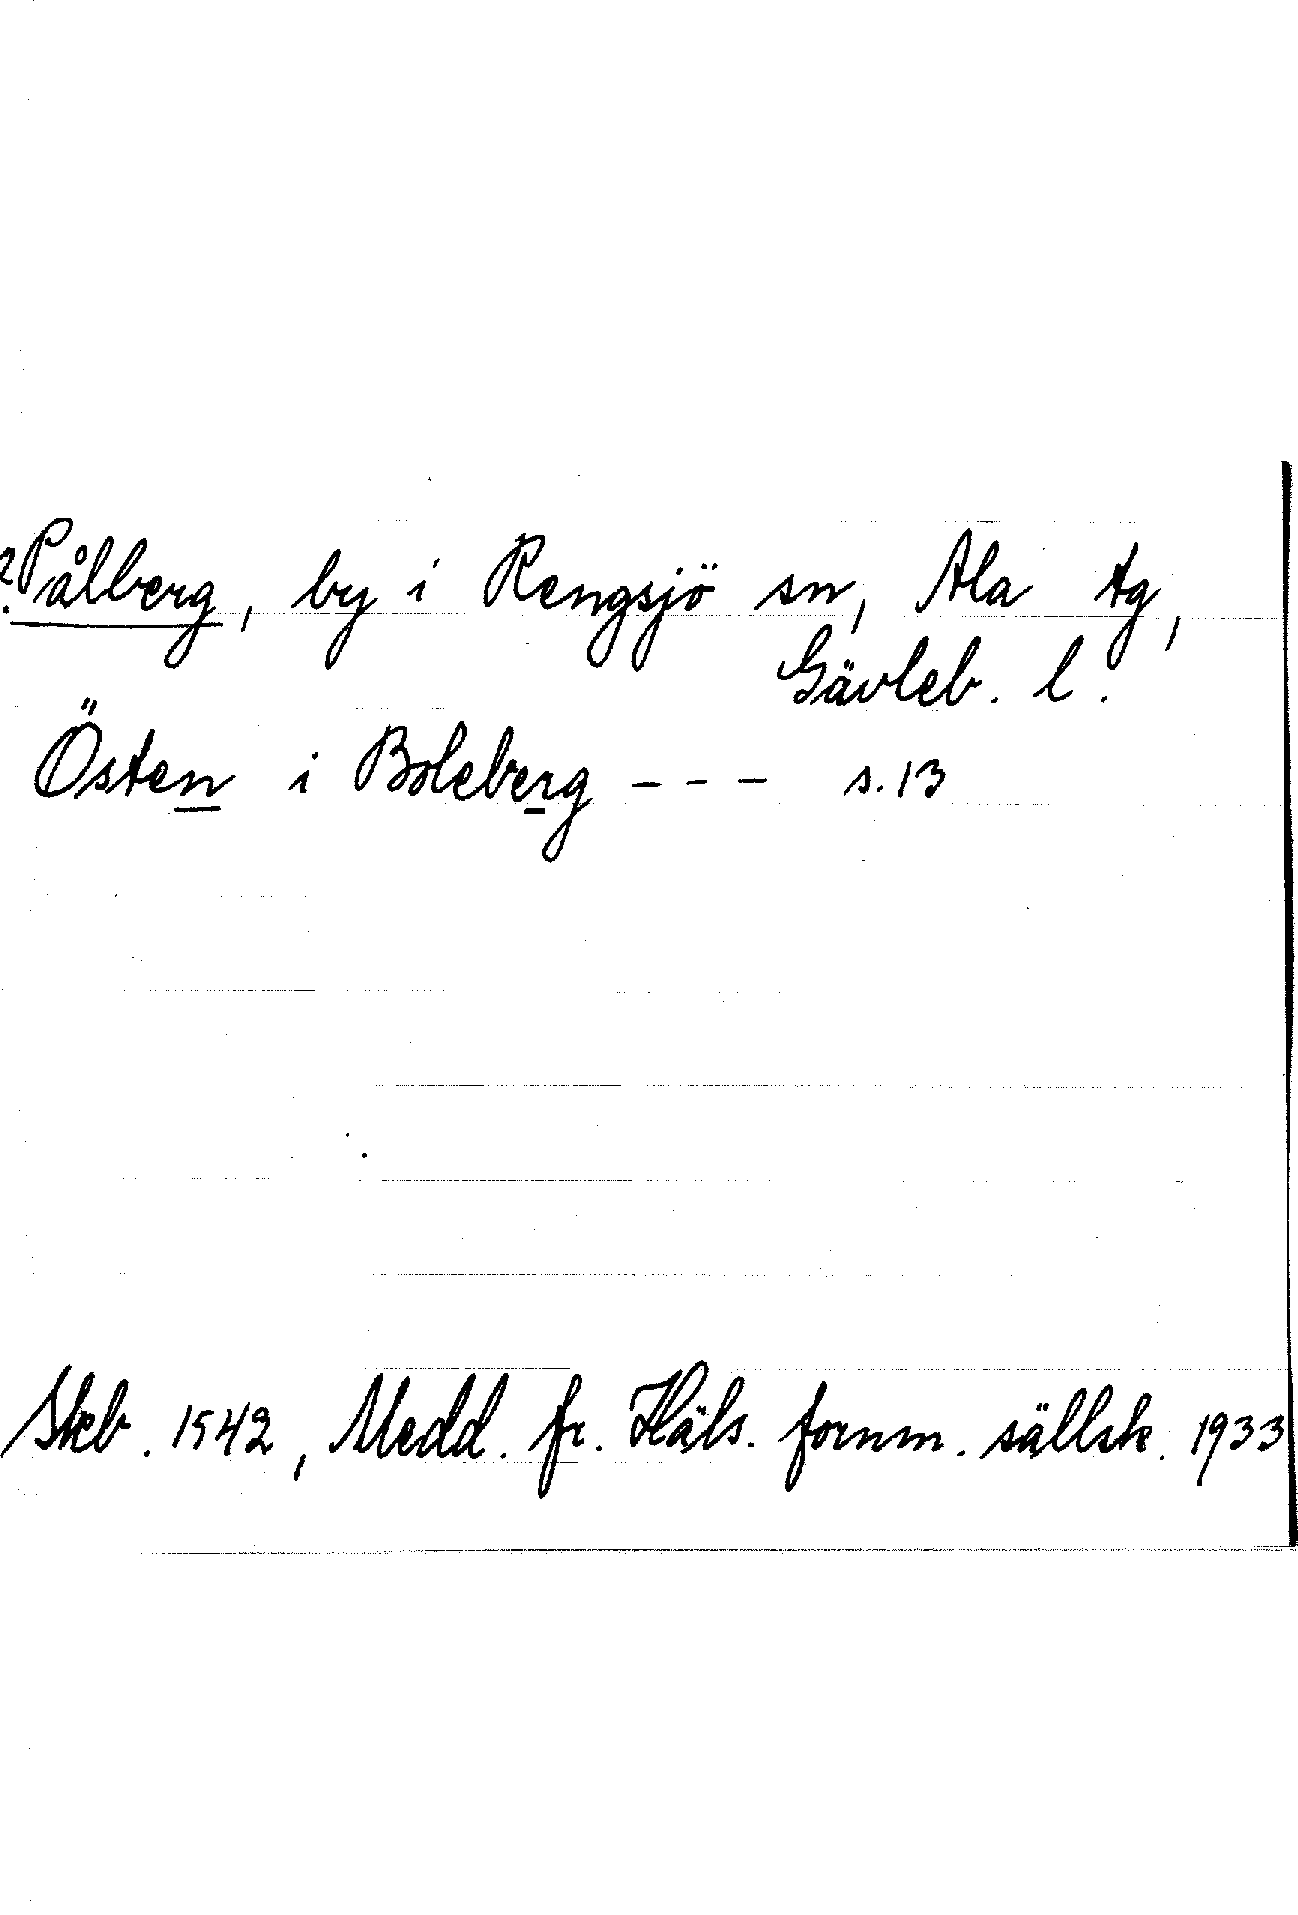 ? Pålberg, by i Rengsjö sn, Ala tg,
Gävleb. l.
Östen i Boleberg - - - s. 13
Skb. 1542, Medd. fr. Häls. fornm. sällsk. 1933